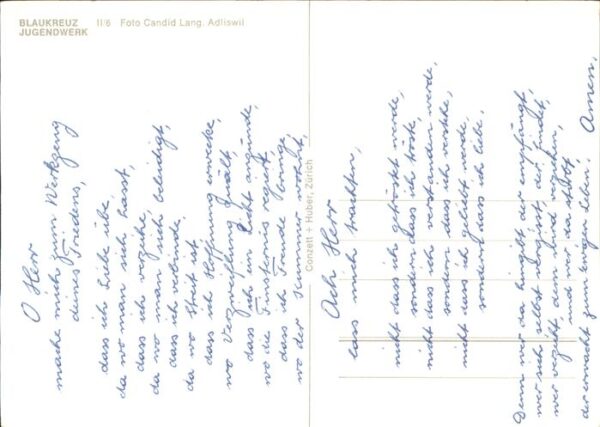 BLAUKREUZ II/6 Foto Candid Lang, Adliswil
JUGENDWERK
O Herr
mache mich zum Werkzeug
deines Friedens,
dass ich Liebe übe,
da wo man sich hasst,
dass ich verzeihe
da wo man sich beleidigt,
dass ich verbinde,
da wo Streit ist
dass ich Hoffnung erwecke,
wo Verzweiflung quält,
dass ich ein Licht anzünde,
wo die Finsternis regiert
dass ich Freude bringe,
wo der Kummer wohnt,
Conzett + Huber, Zürich
Ach Herr
lass mich trachten,
nicht dass ich getröstet werde,
sondern dass ich tröste,
nicht dass ich verstanden werde,
sondern dass ich verstehe,
nicht dass ich geliebt werde,
sondern dass ich liebe.
Denn wer da hingibt der empfängt,
wer sich selbst vergisst, der findet,
wer verzeiht, dem wird verziehen,
und wer da stirbt
der erwacht zum ewigen Leben. Amen.